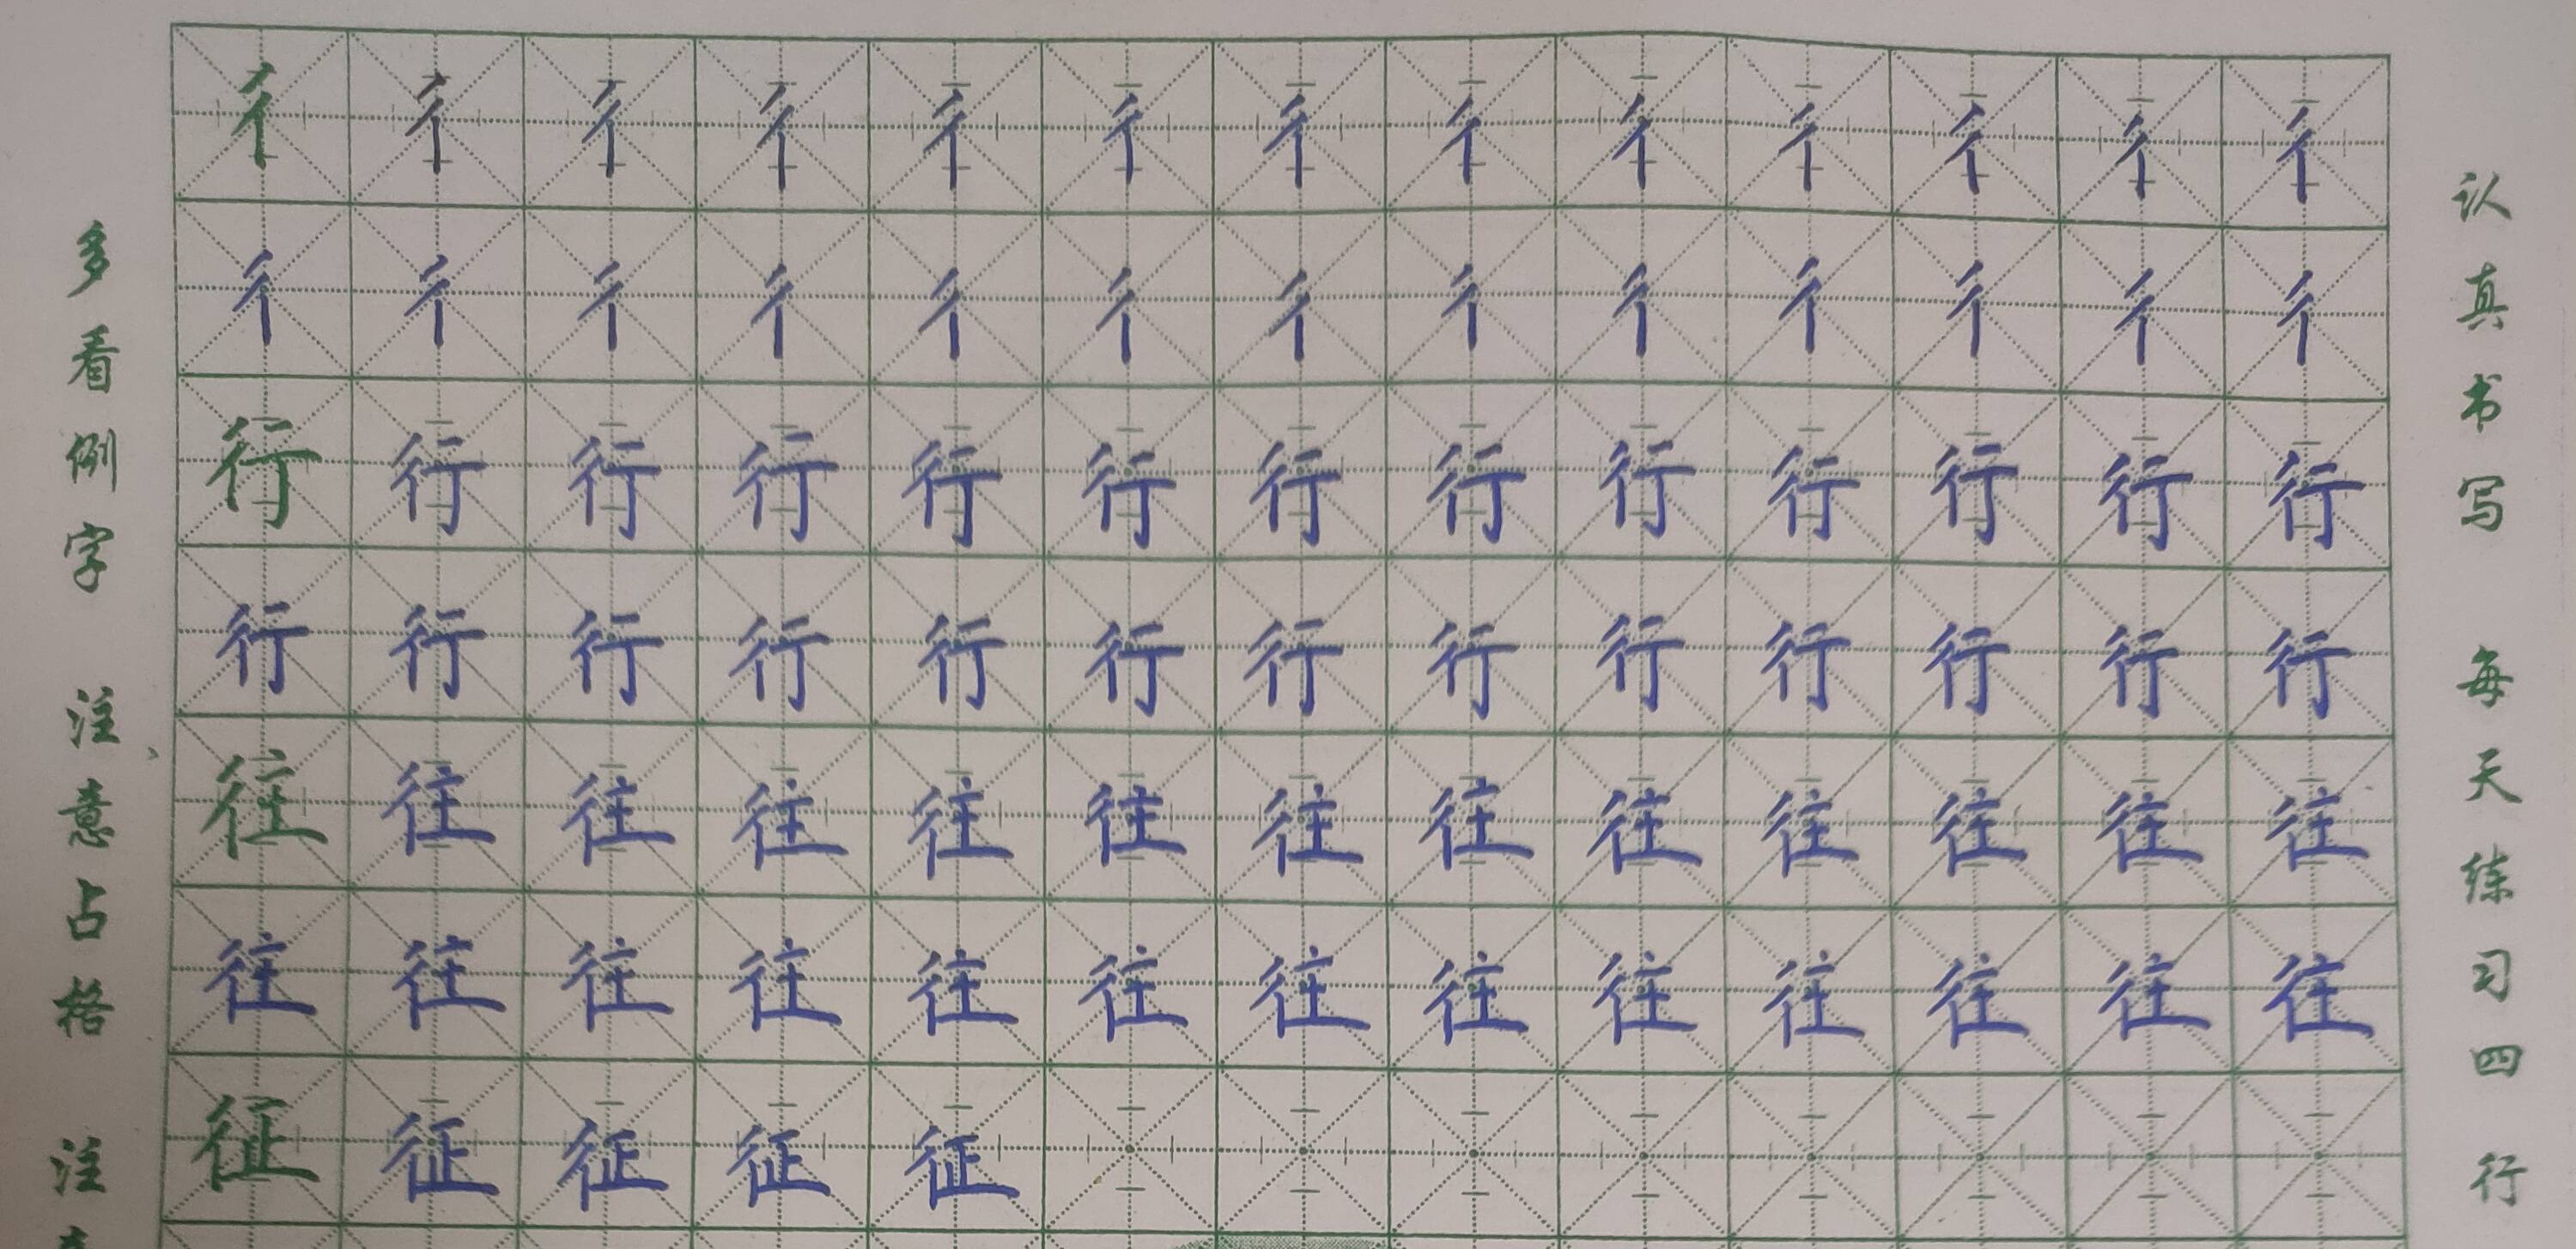 多看例字 注意占格 注
彳彳彳彳彳彳彳彳彳彳彳彳彳
彳彳彳彳彳彳彳彳彳彳彳彳彳
行行行行行行行行行行行行行
行行行行行行行行行行行行行
往往往往往往往往往往往往往
往往往往往往往往往往往往往
征征征征征
认真书写 每天练习四行